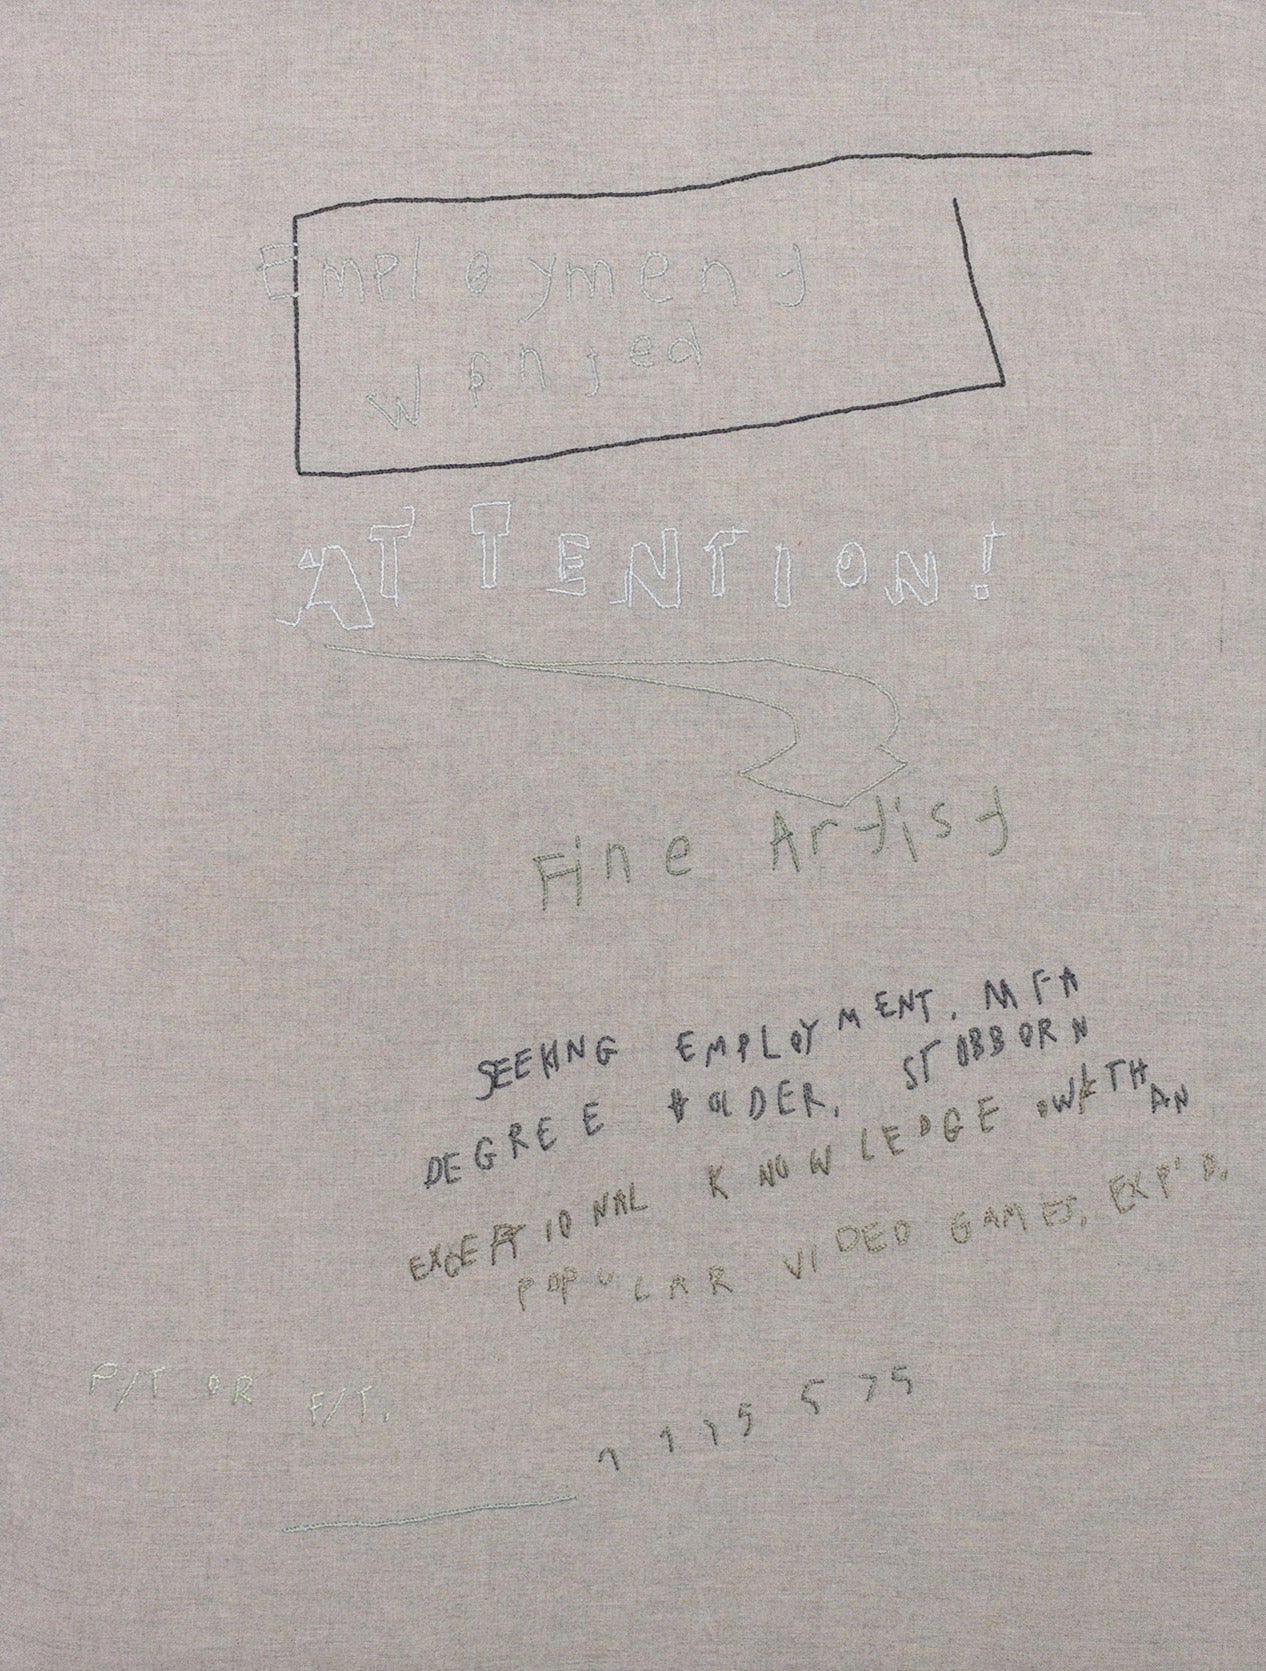 Employment
Wanted
ATTENTION!
Fine Artist
SEEKING EMPLOYMENT. MFA
DEGREE HOLDER, STUBBORN
EXCEPTIONAL KNOWLEDGE OF
WITH AN
POPULAR VIDEO GAMES, EXP'D.
P/T OR F/T.